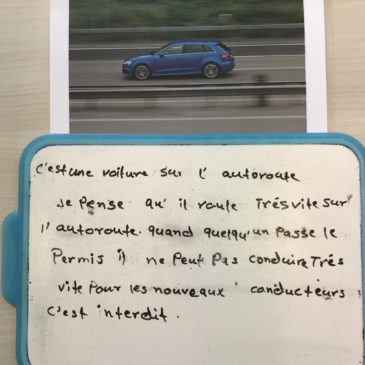 c'est une voiture sur l' autoroute
Je pense qu' il roule Très vite sur
l' autoroute. quand quelqu'un Passe le
Permis il ne Peut Pas conduire Très
vite Pour les nouveaux conducteurs
c'est interdit.